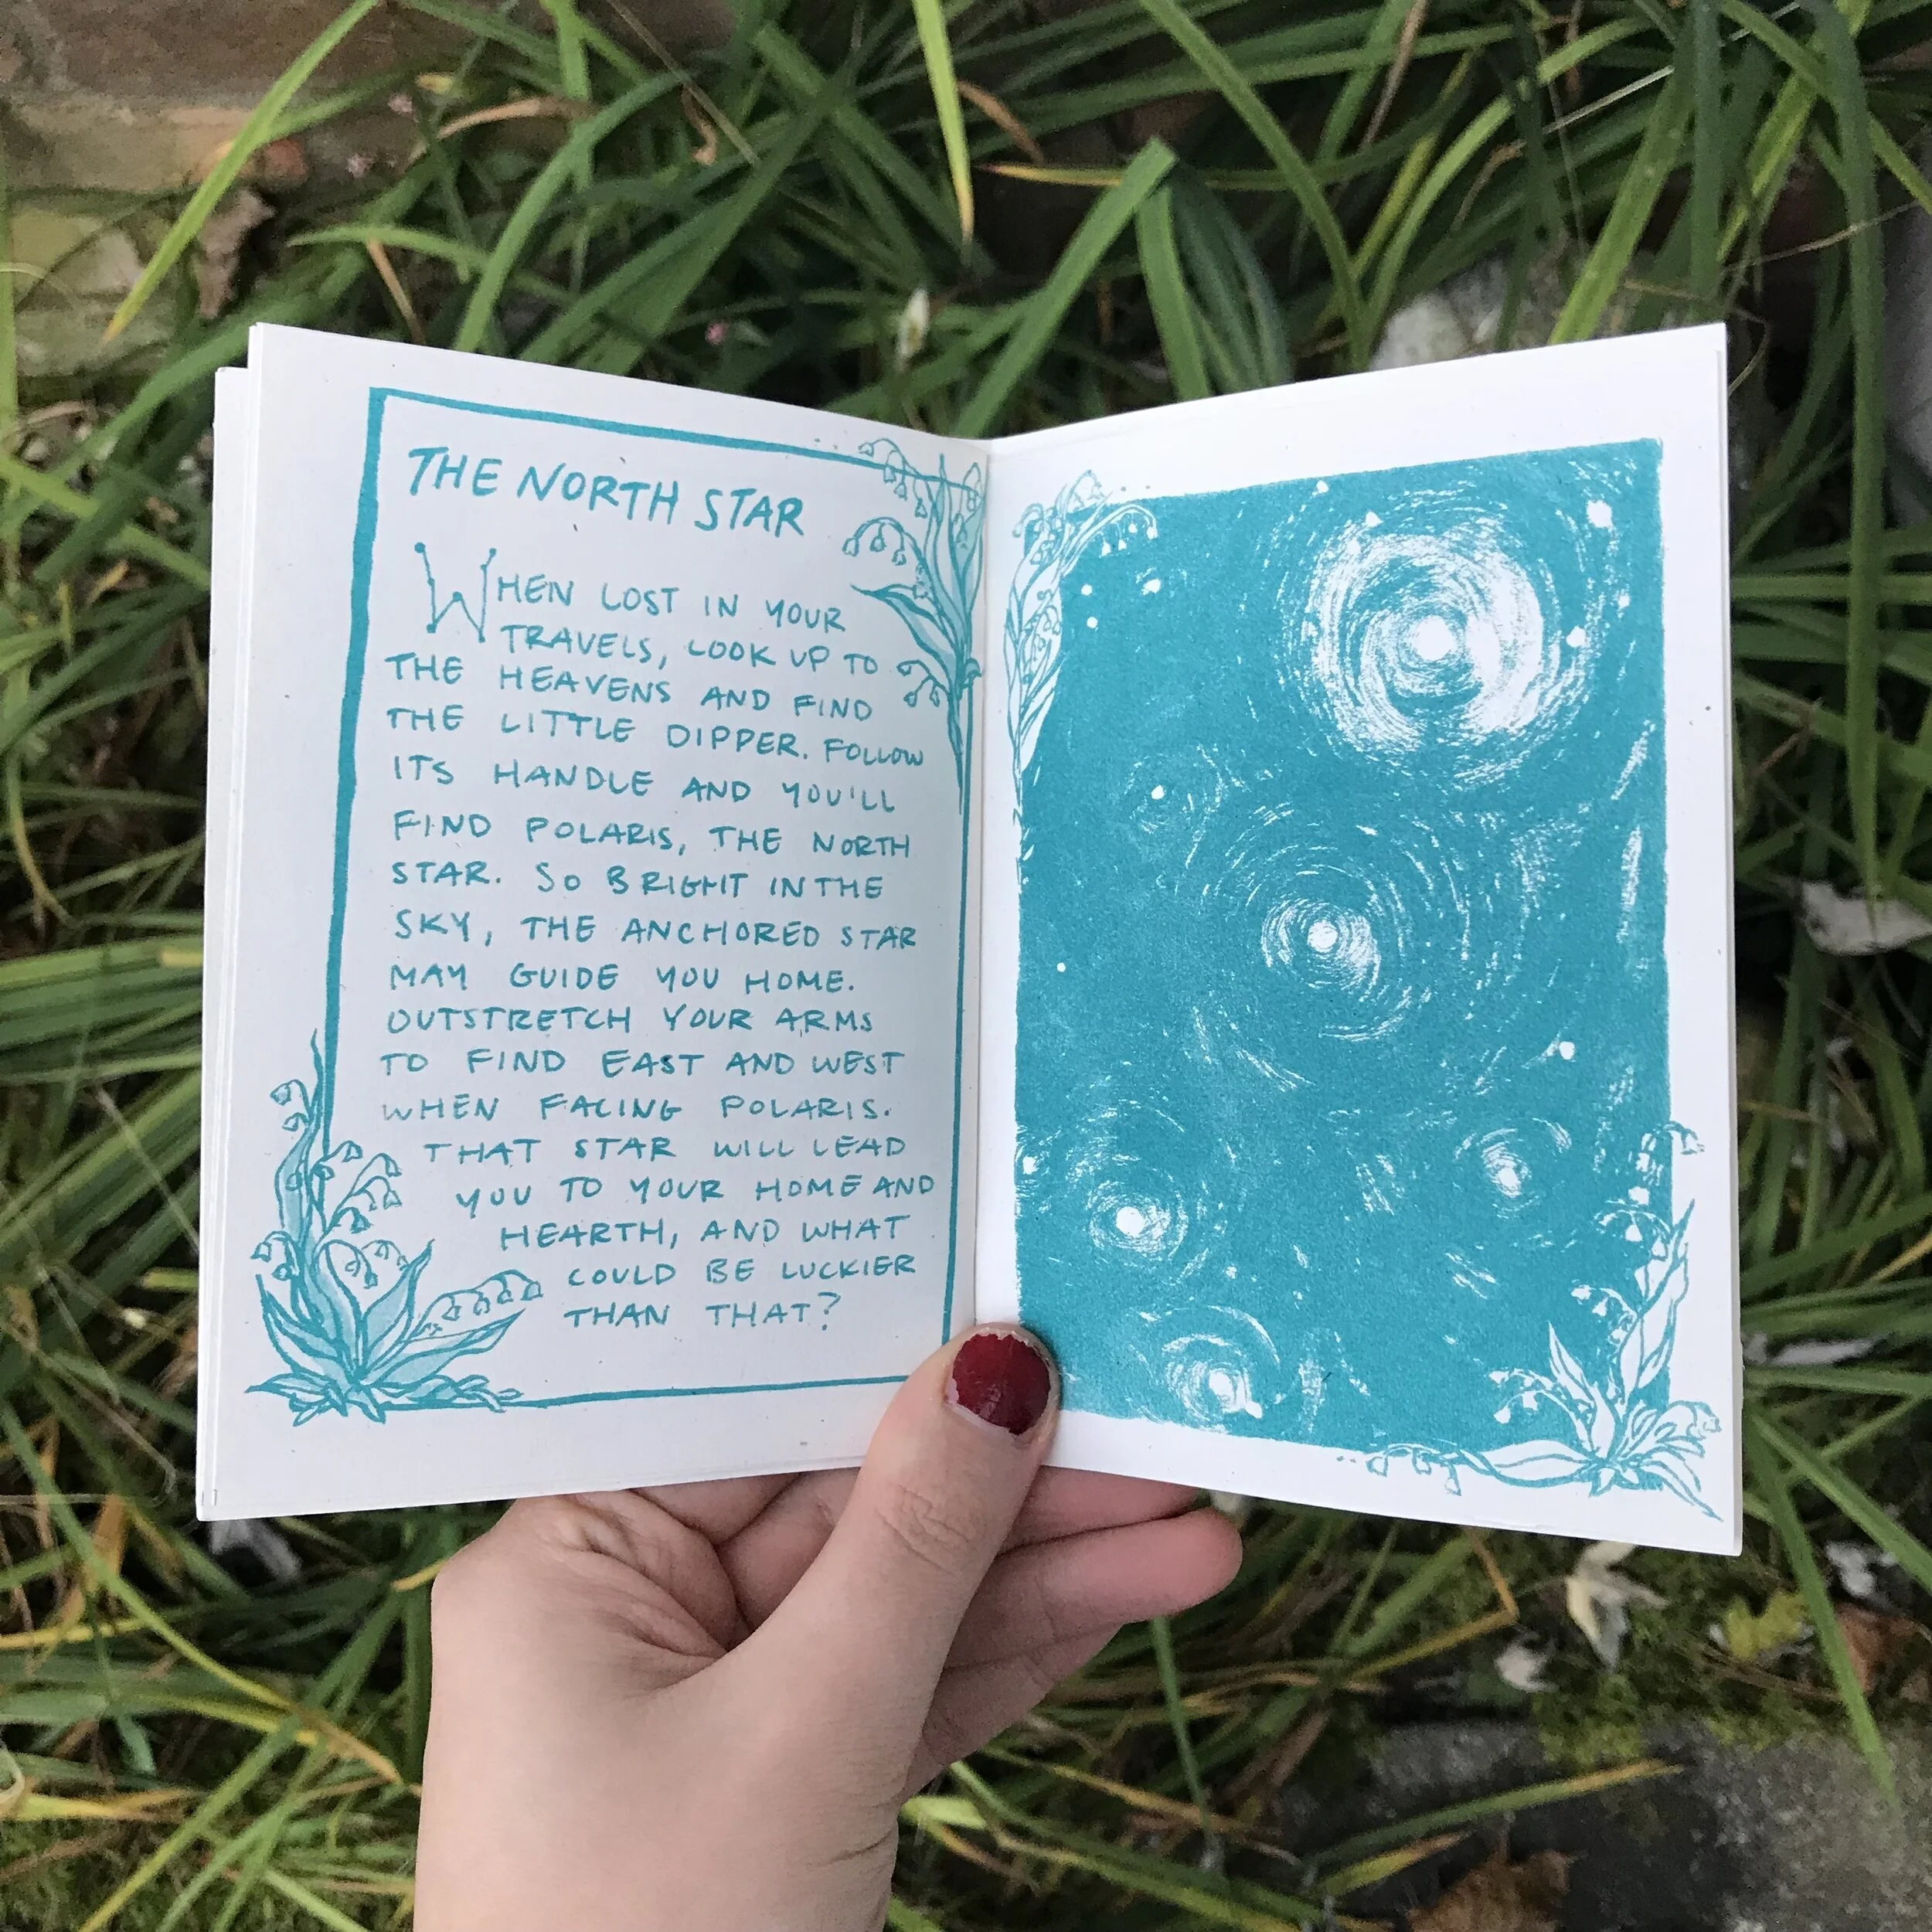 THE NORTH STAR
WHEN LOST IN YOUR
TRAVELS, LOOK UP TO
THE HEAVENS AND FIND
THE LITTLE DIPPER. FOLLOW
ITS HANDLE AND YOU'LL
FIND POLARIS, THE NORTH
STAR. SO BRIGHT IN THE
SKY, THE ANCHORED STAR
MAY GUIDE YOU HOME.
OUTSTRETCH YOUR ARMS
TO FIND EAST AND WEST
WHEN FACING POLARIS.
THAT STAR WILL LEAD
YOU TO YOUR HOME AND
HEARTH, AND WHAT
COULD BE LUCKIER
THAN THAT?